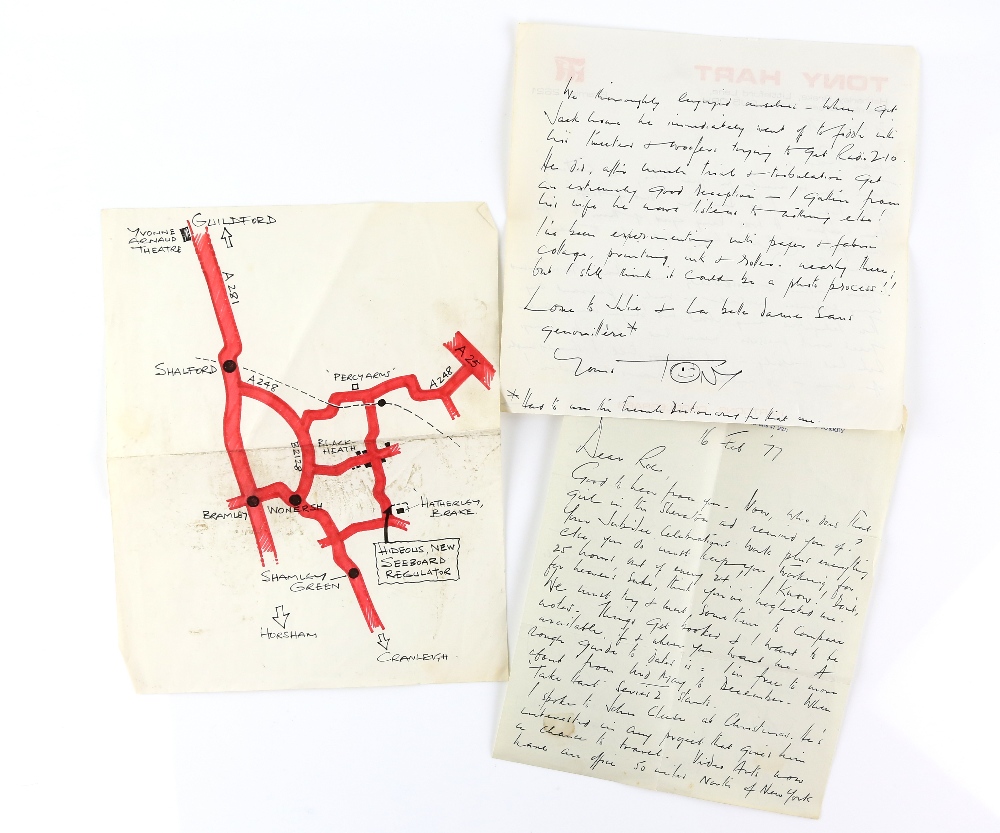 GUILDFORD
YVONNE
ARNAUD
THEATRE
A 281
SHALFORD
A248
'PERCY ARMS'
A 25
A248
B2128
BLACK-
HEATH
BRAMLEY
WONERSH
'HATHERLEY,
BRAKE.
HIDEOUS, NEW
SEEBOARD
REGULATOR
SHAMLEY
GREEN
HORSHAM
CRANLEIGH
TONY HART
We thoroughly enjoyed ourselves - When I got
Jack home he immediately went off to fiddle with
his tweeters & woofers trying to get Radio 210.
He did, after much trial & tribulation get
an extremely good reception - I gather from
his wife he now listens to nothing else!
I've been experimenting with paper & fabric
collage, printing, ink & roller. nearly there;
but I still think it could be a photo process!!
Love to Julie & La belle dame Sans
genouillère*
Yours TONY
* Had to use the French Dictionary for that one.
16 Feb '77
Dear Roc,
Good to hear from you. Now, who does that
girl in the Sheraton ad remind you of?
Your Jubilee Celebrations book plus everything
else you do must keep you working for
25 hours out of every 24. I know, I don't,
for heaven's sake, think you've neglected me.
We must try & meet sometime to compare
notes. Things get booked & I want to be
available if & when you want me. A
rough guide to dates is: I'm free to move
about from mid May to December. When
Take Hart Series 2 starts.
I spoke to John Cleese at Christmas. He's
interested in any project that gives him
a chance to travel. Video Arts now
have an office 50 miles North of New York